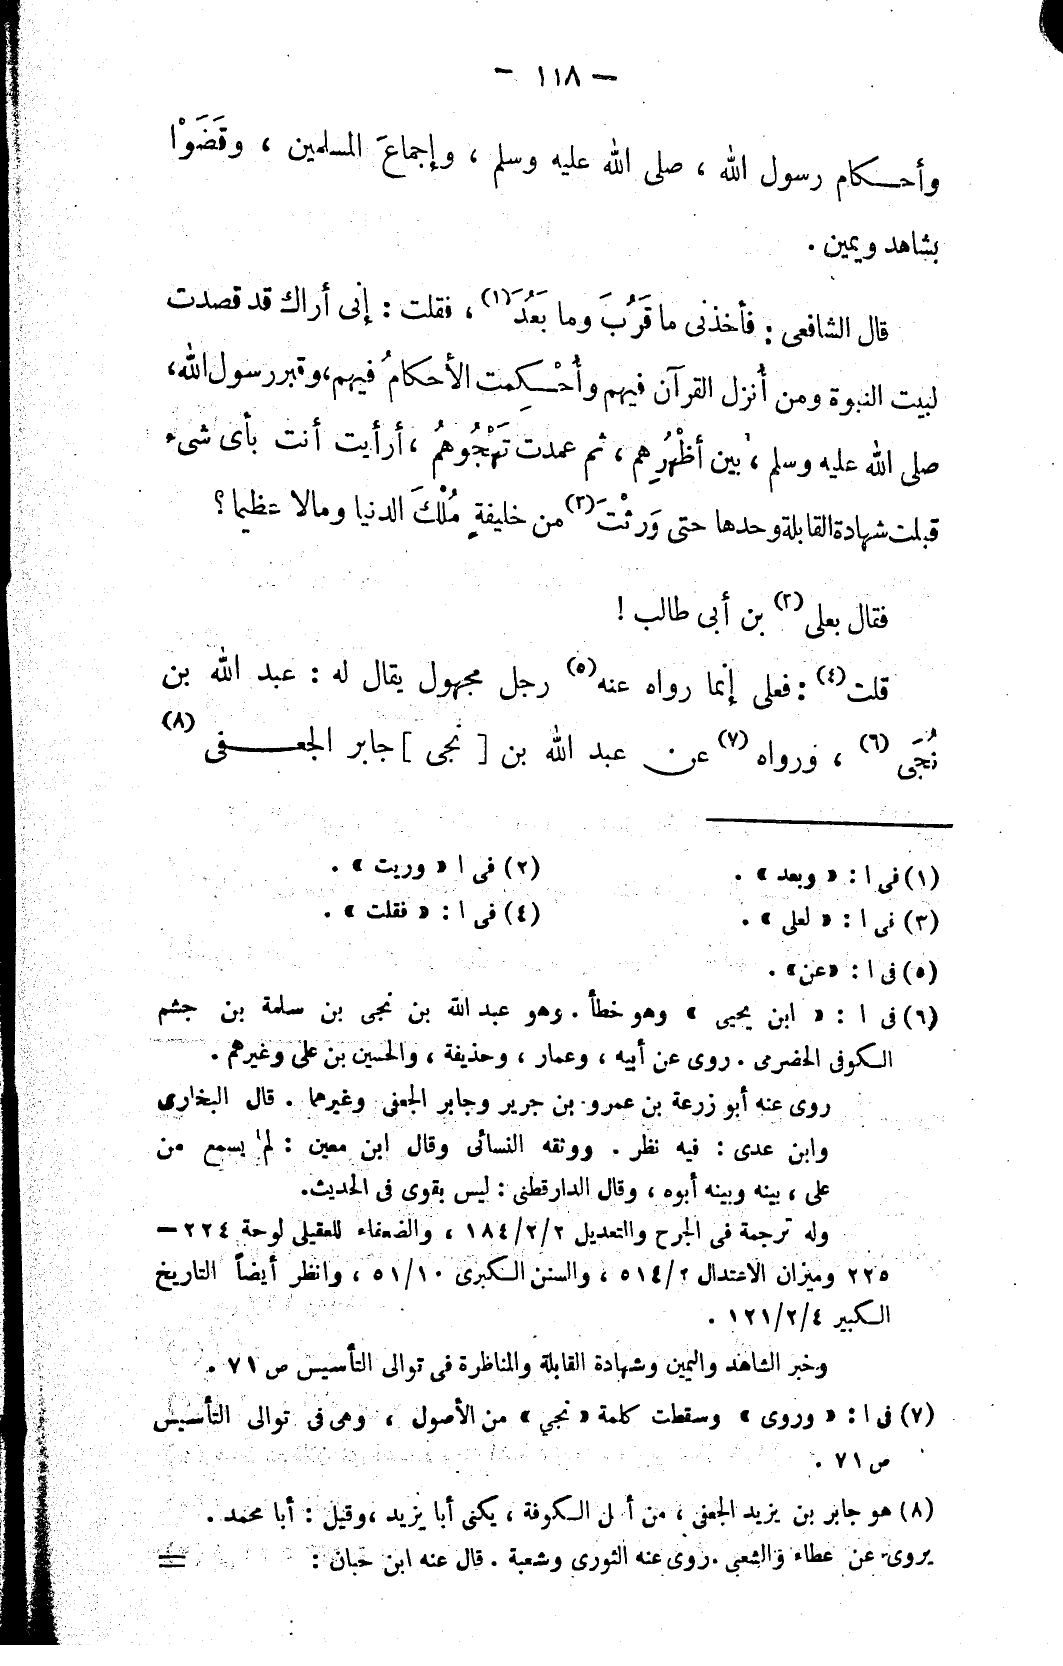 — ١١٨ —
وأحكام رسول الله ، صلى الله عليه وسلم ، وإجماعَ المسلمين ، وقَضَوْا
بشاهد ويمين .
قال الشافعى : فأخذنى ما قَرُبَ وما بَعُدَ(١) ، فقلت : إنى أراك قد قصدت
لبيت النبوة ومن أُنزل القرآن فيهم وأُحْكِمت الأحكامُ فيهم، وقبر رسول الله،
صلى الله عليه وسلم ، بين أظْهُرِهم ، ثم عمدت تَهْجُوهمُ ، أرأيت أنت بأى شىء
قبلت شهادة القابلة وحدها حتى وَرثْتَ(٢) من خليفةٍ مُلْكَ الدنيا ومالا عظيما ؟
فقال بعلى(٣) بن أبى طالب !
قلت(٤) : فعلى إنما رواه عنه(٥) رجل مجهول يقال له : عبد الله بن
نُجَى(٦) ، ورواه(٧) عن عبد الله بن [ نجى ] جابر الجعفى(٨)
(١) فى ا : « وبعد » .
(٢) فى ا « وريت » .
(٣) فى ا : « لعلى » .
(٤) فى ا : « فقلت » .
(٥) فى ا : «عن» .
(٦) فى ا : « ابن يحيى » وهو خطأ . وهو عبد الله بن نجى بن سلمة بن جشم
الكوفى الحضرمى . روى عن أبيه ، وعمار ، وحذيفة ، والحسين بن على وغيرهم .
روى عنه أبو زرعة بن عمرو بن جرير وجابر الجعفى وغيرهما . قال البخارى
وابن عدى : فيه نظر . ووثقه النسائى وقال ابن معين : لم يسمع من
على ، بينه وبينه أبوه ، وقال الدارقطنى : ليس بقوى فى الحديث.
وله ترجمة فى الجرح والتعديل ١٨٤/٢/٢ ، والضعفاء للعقيلى لوحة ٢٢٤ —
٢٢٥ وميزان الاعتدال ٥١٤/٢ ، والسنن الكبرى ٥١/١٠ ، وانظر أيضاً التاريخ
الكبير ١٢١/٢/٤ .
وخبر الشاهد واليمين وشهادة القابلة والمناظرة فى توالى التأسيس ص ٧١ .
(٧) فى ا : « وروى » وسقطت كلمة « نجي » من الأصول ، وهى فى توالى التأسيس
ص ٧١ .
(٨) هو جابر بن يزيد الجعفى ، من أهل الكوفة ، يكنى أبا يزيد ، وقيل : أبا محمد .
يروى عن عطاء والشعبى . روى عنه الثورى وشعبة . قال عنه ابن حبان : =